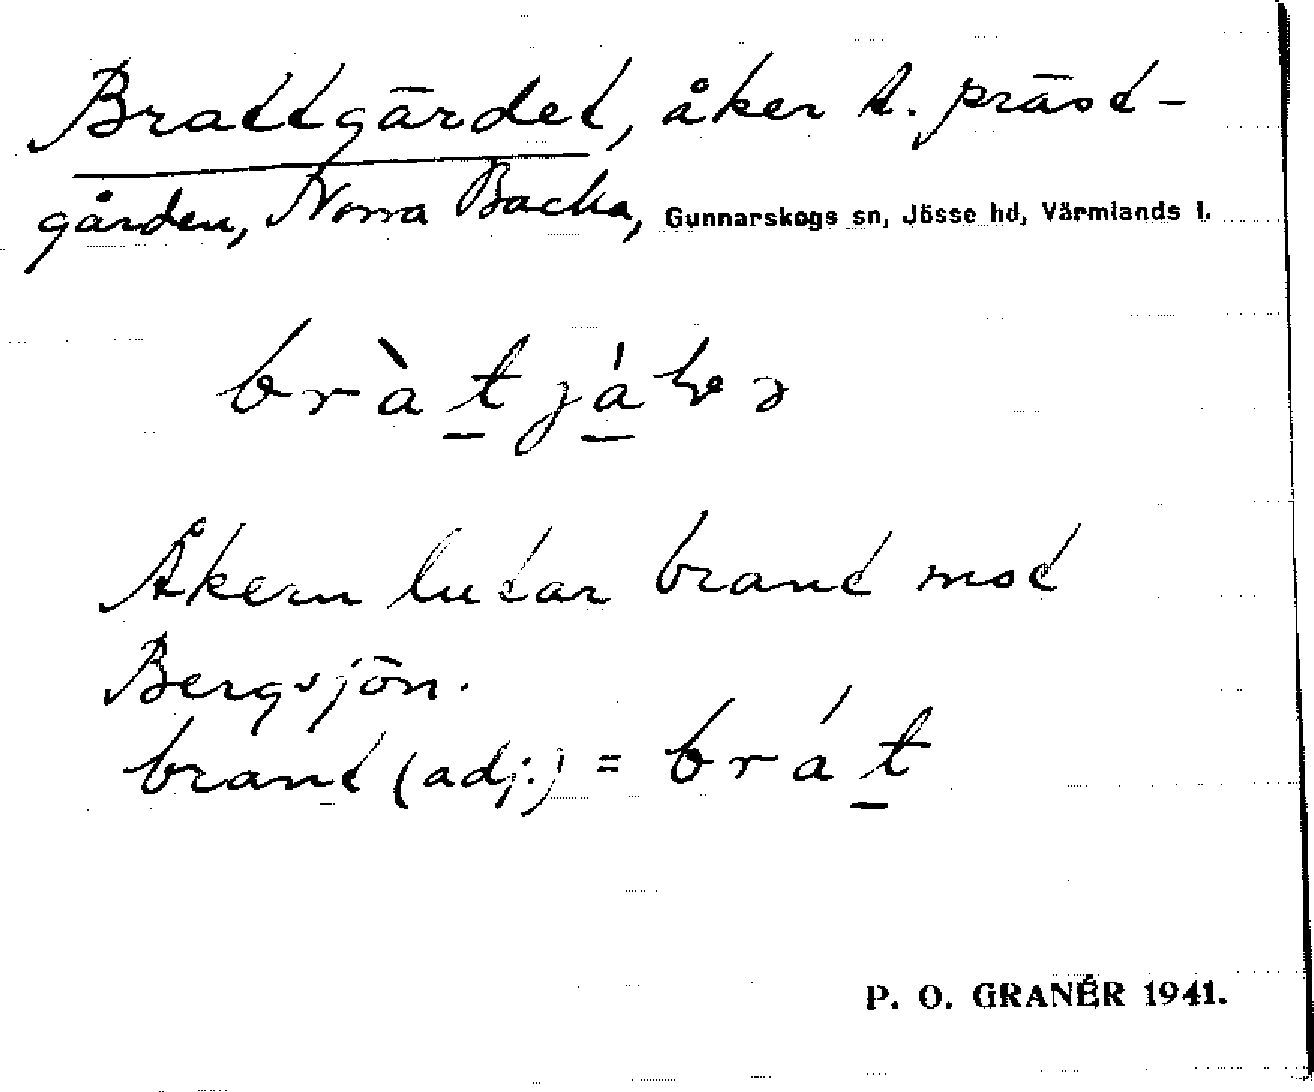 Brattgärdet, åker t. präst-
gården, Norra Backa, Gunnarskogs sn, Jösse hd, Värmlands l.
Åkern lutar brant mot
Bergsjön.
brant (adj.) = bràt
P. O. GRANÉR 1941.